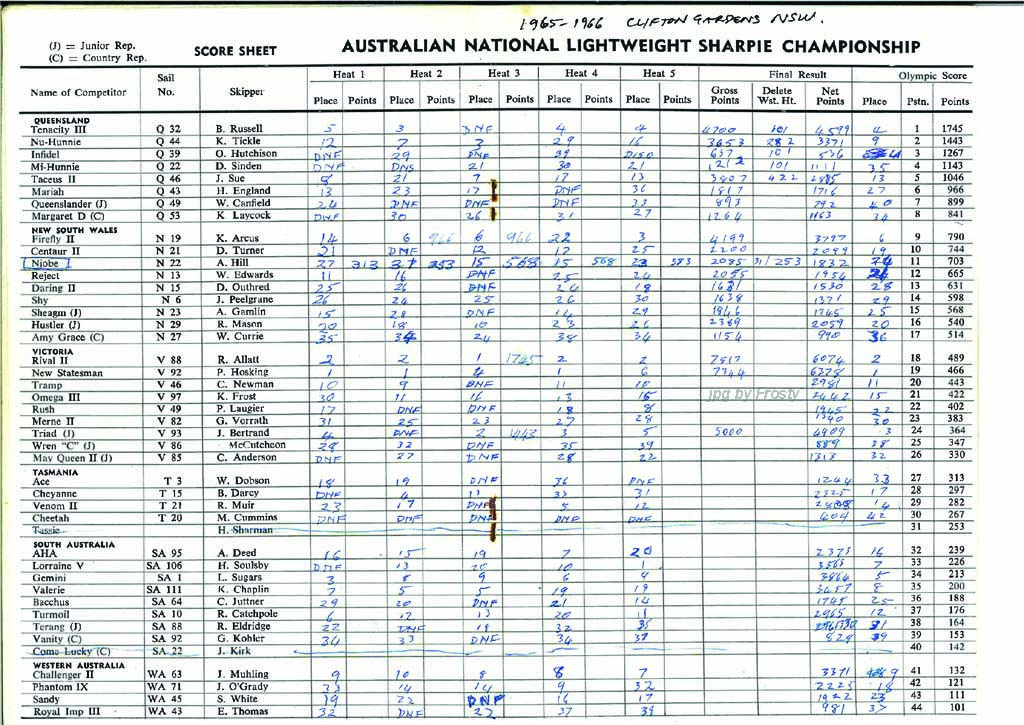 1965-1966 CLIFTON GARDENS NSW.
(J) = Junior Rep.
(C) = Country Rep.
SCORE SHEET
AUSTRALIAN NATIONAL LIGHTWEIGHT SHARPIE CHAMPIONSHIP
Name of Competitor Sail No. Skipper Heat 1 Heat 2 Heat 3 Heat 4 Heat 5 Final Result Olympic Score
Place Points Place Points Place Points Place Points Place Points Gross Points Delete Wst. Ht. Net Points Place Pstn. Points
QUEENSLAND
Tenacity III Q 32 B. Russell 5 3 DNF 4 4 4700 101 4599 4 1 1745
Nu-Hunnie Q 44 K. Tickle 12 7 3 29 16 3653 282 3371 9 2 1443
Infidel Q 39 O. Hutchison DNF 29 DNF 39 DISQ 637 101 536 3 1267
MI-Hunnie Q 22 D. Sinden DNF DNS 21 30 21 1212 101 1111 35 4 1143
Taceus II Q 46 J. Sue 8 21 7 17 13 3807 422 13 5 1046
Mariah Q 43 H. England 13 23 17 DNF 36 1817 1716 27 6 966
Queenslander (J) Q 49 W. Canfield 24 DNF DNF DNF 33 893 792 40 7 899
Margaret D (C) Q 53 K Laycock DNF 30 26 31 27 1264 1163 34 8 841
NEW SOUTH WALES
Firefly II N 19 K. Arcus 14 6 966 6 966 22 3 4199 6 9 790
Centaur II N 21 D. Turner 21 DNF 12 12 25 2200 2099 19 10 744
Niobe N 22 A. Hill 27 313 37 253 15 568 15 568 23 383 2085 31/253 1832 24 11 703
Reject N 13 W. Edwards 11 16 DNF 25 24 2055 1954 12 665
Daring II N 15 D. Outhred 25 26 DNF 24 18 1631 1530 28 13 631
Shy N 6 J. Peelgrane 26 24 25 26 30 1638 1371 29 14 598
Sheagm (J) N 23 A. Gamlin 15 28 DNF 14 29 1846 1745 25 15 568
Hustler (J) N 29 R. Mason 20 18 10 23 26 2389 2059 20 16 540
Amy Grace (C) N 27 W. Currie 35 34 24 38 34 1154 990 36 17 514
VICTORIA
Rival II V 88 R. Allatt 2 2 1 1745 2 2 7517 6074 2 18 489
New Statesman V 92 P. Hosking 1 1 4 1 6 7344 6378 1 19 466
Tramp V 46 C. Newman 10 9 DNF 11 10 2981 11 20 443
Omega III V 97 K. Frost 30 11 16 13 16 2442 15 21 422
jpg by Frosty
Rush V 49 P. Laugier 17 DNF DNF 18 8 1945 22 22 402
Merne II V 82 G. Vorrath 31 25 23 27 28 1340 30 23 383
Triad (J) V 93 J. Bertrand 4 DNF 2 1443 3 5 5000 4909 3 24 364
Wren "C" (J) V 86 McCutcheon 28 32 DNF 35 39 889 38 25 347
May Queen II (J) V 85 C. Anderson DNF 27 DNF 28 22 1313 32 26 330
TASMANIA
Ace T 3 W. Dobson 18 19 DNF 36 DNF 1244 33 27 313
Cheyanne T 15 B. Darcy DNF 4 11 33 31 2325 17 28 297
Venom II T 21 R. Muir 23 17 DNF 5 12 14 29 282
Cheetah T 20 M. Cummins DNF DNF DNF DNF DNF 404 42 30 267
Tassie H. Sharman 31 253
SOUTH AUSTRALIA
AHA SA 95 A. Deed 16 15 19 7 20 2373 16 32 239
Lorraine V SA 106 H. Soulsby DNF 13 20 10 1 3565 7 33 226
Gemini SA 1 L. Sugars 3 8 9 6 4 3964 5 34 213
Valerie SA 111 K. Chaplin 7 5 5 19 19 3457 8 35 200
Bacchus SA 64 C. Juttner 29 20 DNF 21 14 1745 25 36 188
Turmoil SA 10 R. Catchpole 6 12 13 20 11 2965 12 37 176
Terang (J) SA 88 R. Eldridge 22 DNF 18 32 35 31 38 164
Vanity (C) SA 92 G. Kohler 34 33 DNF 34 37 828 39 39 153
Come Lucky (C) SA 22 J. Kirk 40 142
WESTERN AUSTRALIA
Challenger II WA 63 J. Muhling 9 10 8 8 7 3371 9 41 132
Phantom IX WA 71 J. O'Grady 33 14 14 9 32 2225 18 42 121
Sandy WA 45 S. White 19 22 DNF 16 17 1922 23 43 111
Royal Imp III WA 43 E. Thomas 32 DNF 22 37 39 981 37 44 101